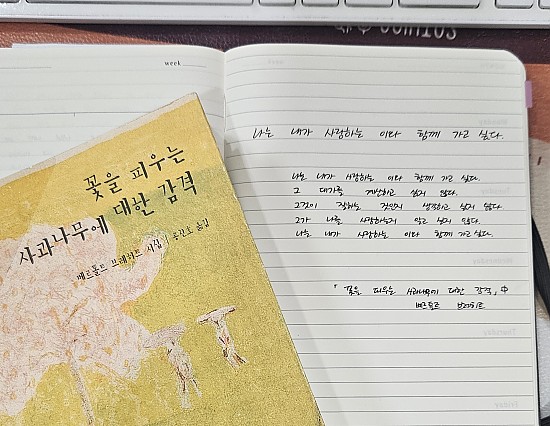 week
나는 내가 사랑하는 이와 함께 가고 싶다.
나는 내가 사랑하는 이와 함께 가고 싶다.
그 대가를 계산하고 싶지 않다.
그것이 잘하는 것인지 생각하고 싶지 않다
그가 나를 사랑하는지 알고 싶지 않다.
나는 내가 사랑하는 이와 함께 가고 싶다.
「꽃을 피우는 사과나무에 대한 감격」中
베르톨트 브레히트
꽃을 피우는
사과나무에 대한 감격
베르톨트 브레히트 시집 | 옮김
Thursday
Friday